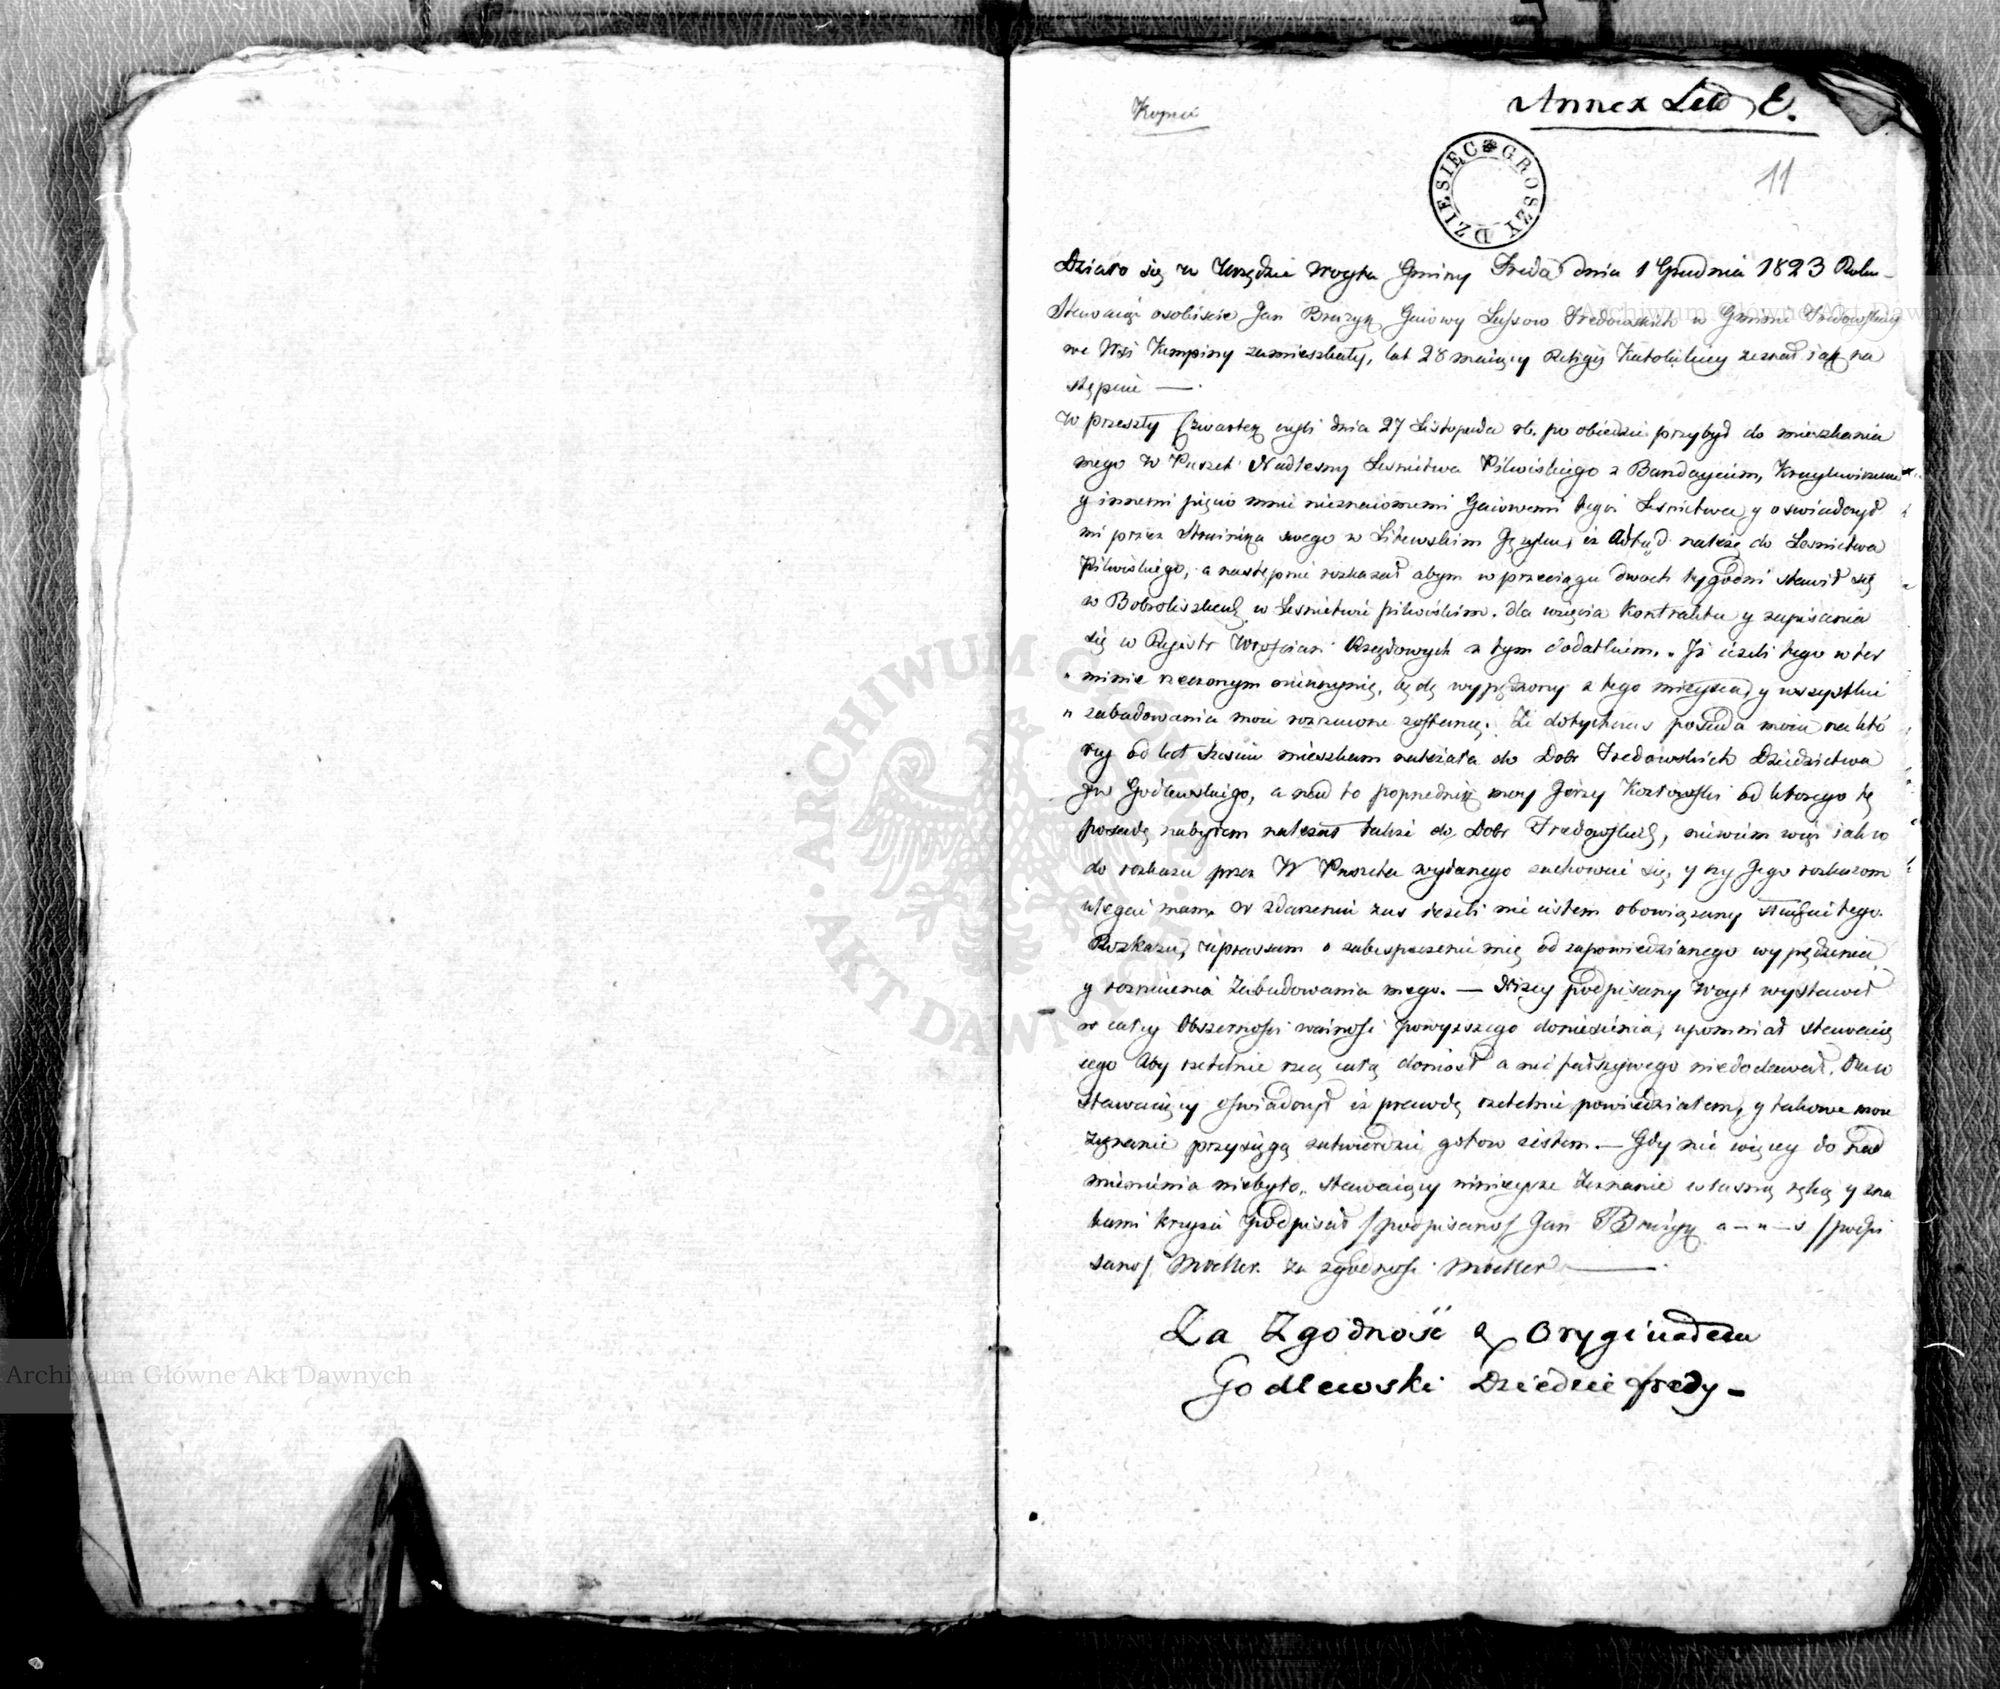 Kopia
Annex Litt E.
DZIESIĘC GROSZY
11
Działo się w Urzędzie Woyta Gminy Freda dnia 1 Grudnia 1823 Roku
Stawaiąc osobiście Jan Gaiowy Lassow Fredowskich w Gminie Fredowskiey
we Wsi zamieszkały, lat 28 maiący Religij Katolickiey zeznał iak na
stępuie —.
W przeszły Czwartek czyli dnia 27 Listopada rb. po obiedzie przybył do mieszkania
mego W Puzet Nadlesny Lesnictwa Pilwiskiego z
y innemi pięcio mnie nieznaiomemi Gaiowemi tegoż Lesnictwa y oswiadczył
mi przez Strażnika swego w Litewskim Języku, iż Odtąd należę do Lesnictwa
Pilwiskiego, a następnie rozkazał abym w przeciągu dwoch tygodni stawił się
w w Lesnictwie pilwiskim. dla wzięcia Kontraktu y zapisania
się w Regestr Włościan Rządowych z tym dodatkiem. „Iż ieżeli tego w ter
„ minie rzeczonym nieuczynię, będę wypędzony z tego mieysca, y wszystkie
„ zabudowania moie rozrzucone zostaną. Że dotychczas posada moia na któ
rey od lat sześciu mieszkam należała do Dobr Fredowskich Dziedzictwa
JW Godlewskiego, a nad to poprzednik moy Jerzy Kozłowski od którego tę
posadę nabyłem należał także do Dobr Fredowskich, niewiem więc iak w
do rozkazu przez W wydanego zachować się, y czy Jego rozkazom
ulegać mam. W zdarzeniu zas ieżeli nie iestem obowiązany słuchać tego
Rozkazu, upraszam o zabespieczenie mię od zapowiedzianego wypędzenia
y rozrzucenia Zabudowania mego. — Niżey podpisany Woyt wystawił
w całey Obszerności ważność powyższego doniesienia, upomniał stawaią
cego Aby rzetelnie rzecz całą doniosł a nic fałszywego niedodawał.
Stawaiący oświadczył iż prawdę rzetelnie powiedziałem, y takowe moie
Zeznanie przysięgą zatwierdzić gotow iestem. — Gdy nic więcey do nad
mienienia niebyło. stawaiący ninieysze Zeznanie własną ręką y zna
kami krzyża podpisał /podpisano/ Jan /podpi
sano/ Moeller. Za zgodność Moeller —
Za Zgodność z Oryginałem
Godlewski Dziedzic Fredy
ARCHIWUM GŁÓWNE AKT DAWNYCH
Archiwum Główne Akt Dawnych
Archiwum Główne Akt Dawnych